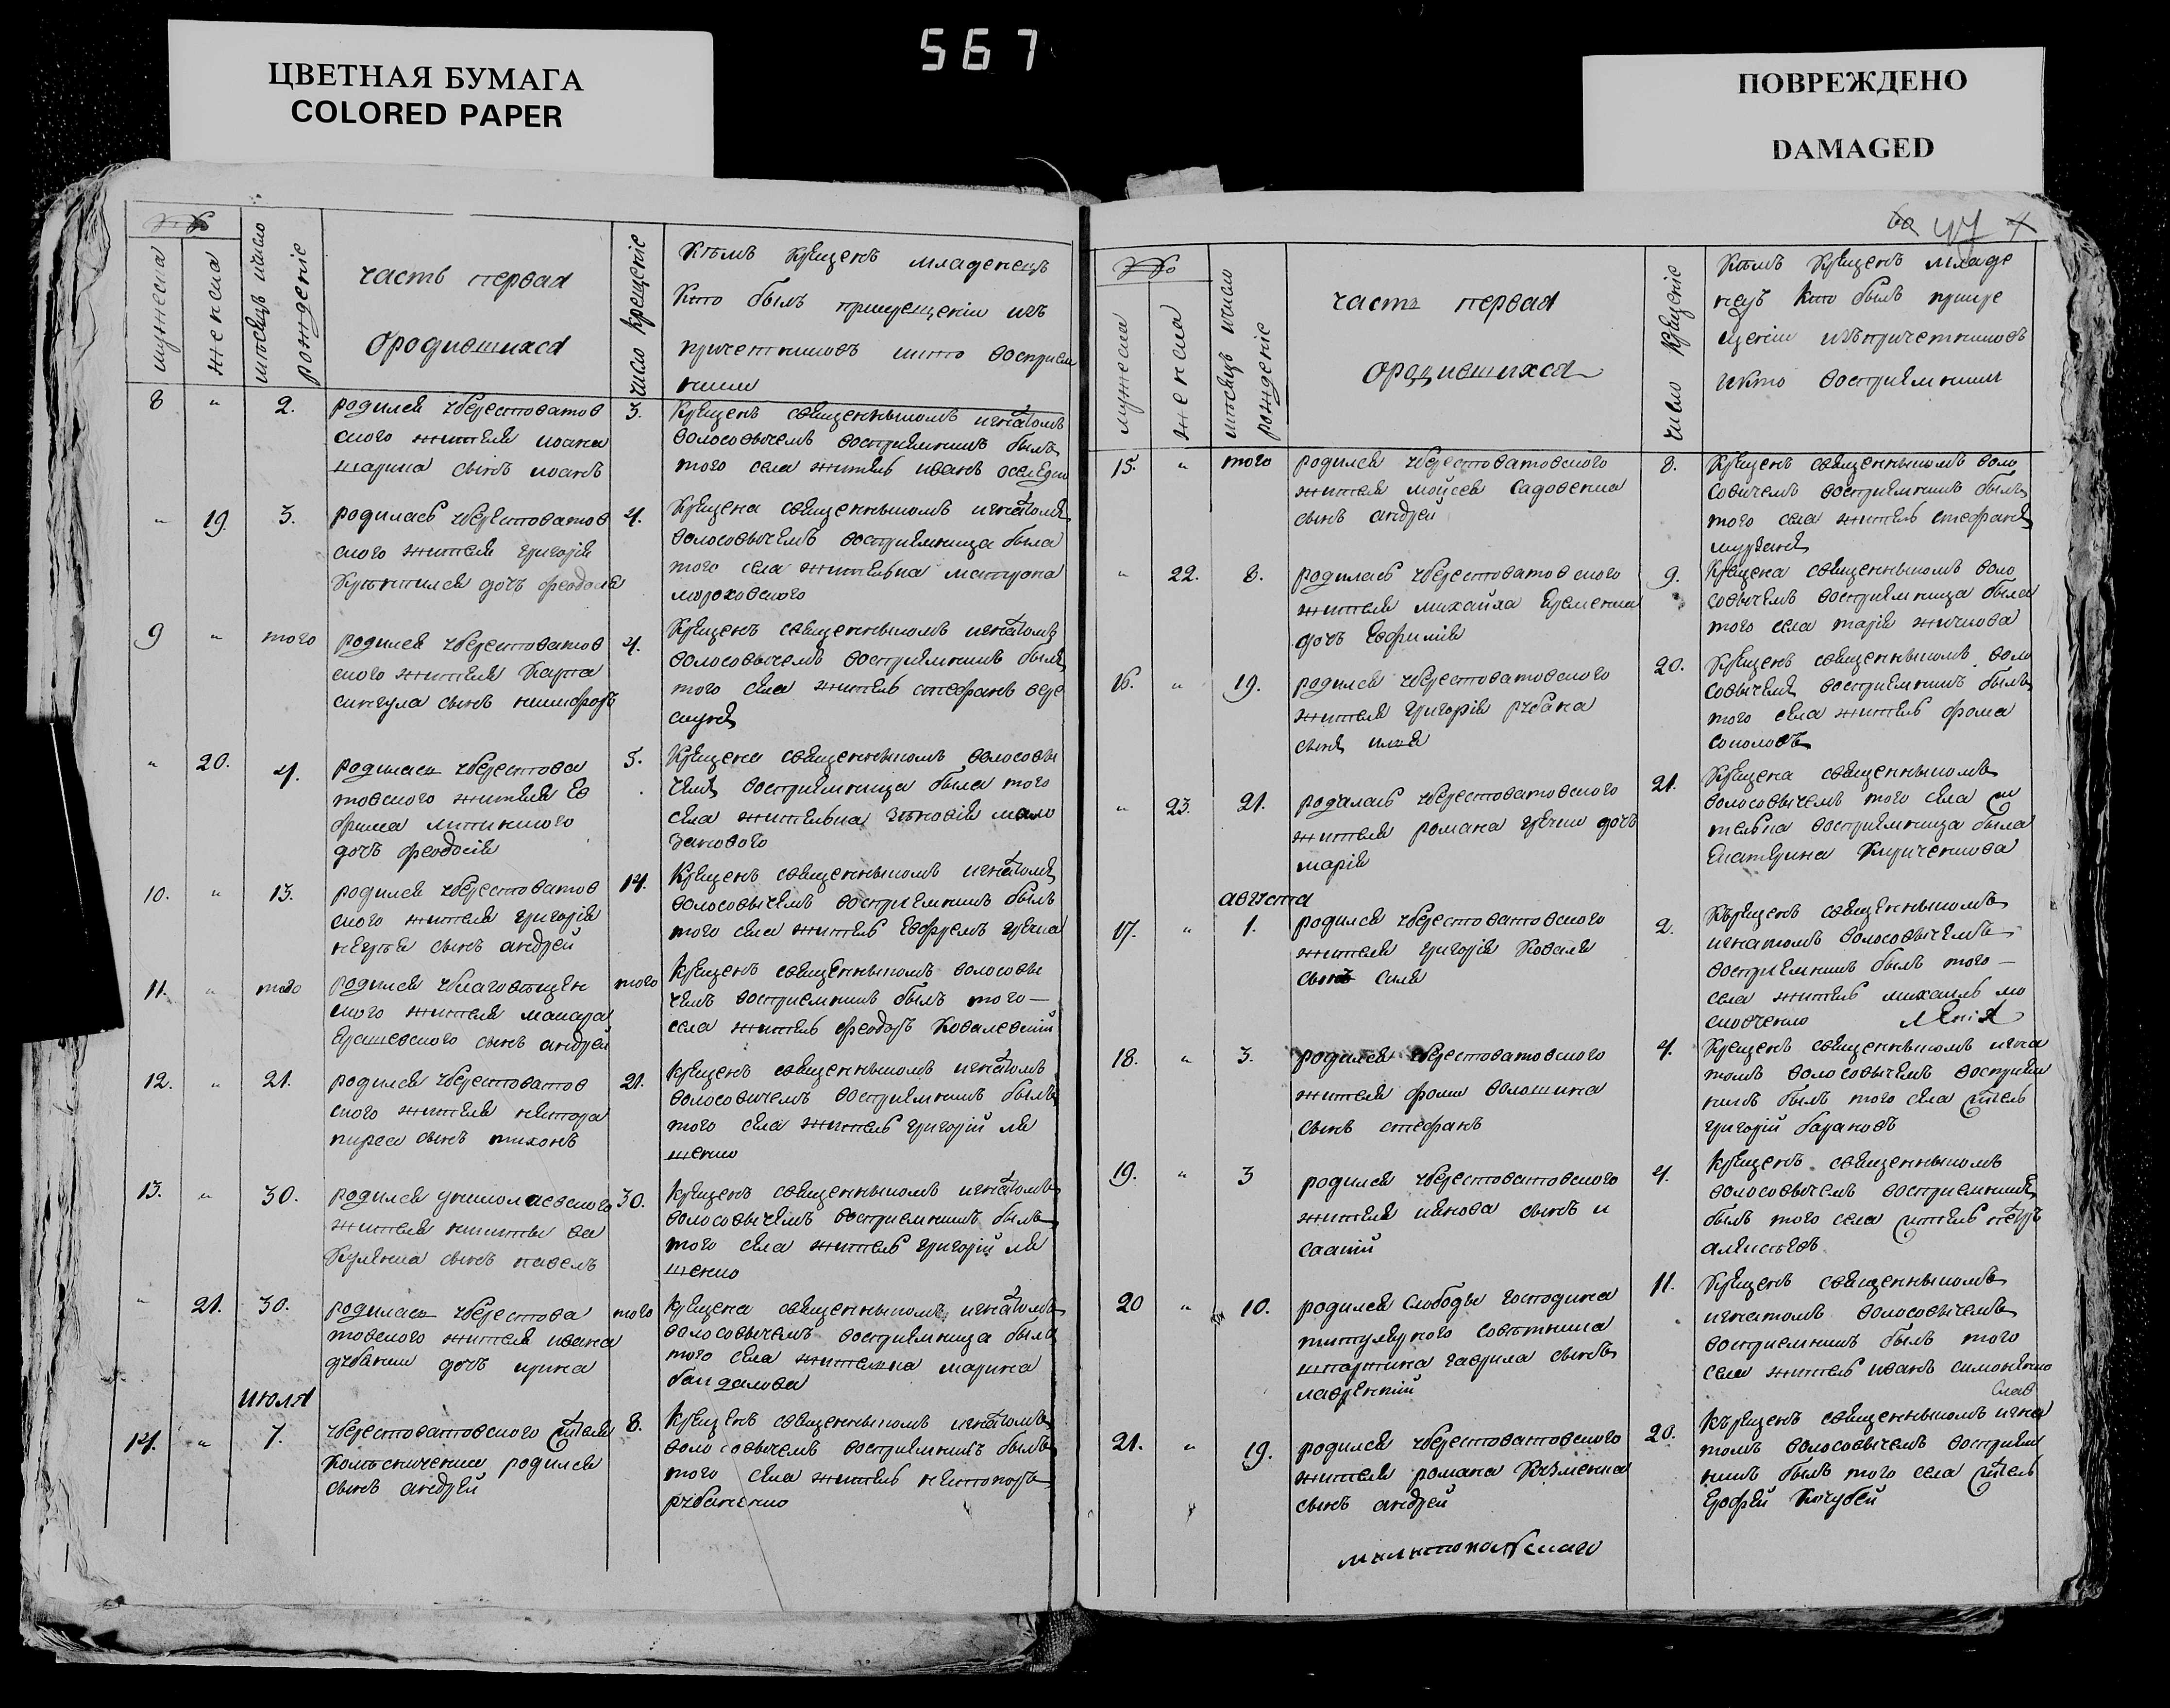 567
ЦВЕТНАЯ БУМАГА
COLORED PAPER
ПОВРЕЖДЕНО
DAMAGED
мужеска
женска
месяцъ ичисло
рождение
часть первая
ородившихся
число крещение
Кемъ крещенъ младенецъ
Кто былъ прикрещении изъ
причетниковъ икто восприем
ники
8 " 2. родился чберестоватов
ского жителя иоана
шарика сынъ иоанъ
3. Крещенъ священникомъ игнатомъ
волосовичемъ восприемникъ былъ
того села житель иванъ
" 19. 3. родилась чберестоватов
ского жителя григорія
дочъ феодосія
4. Крещена священникомъ игнатомъ
волосовичемъ восприемница была
того села жителька матрона
мороховского
9 " того родился чберестоватов
ского жителя Карпа
сынъ никифоръ
4. Крещенъ священникомъ игнатомъ
волосовичемъ восприемникъ былъ
того села житель стефанъ
" 20. 4. родилася чберестова
товского жителя Ев
фима
дочъ феодосія
5. Крещена священникомъ волосови
чемъ восприемница была того
села жителька зеновія мало
10. " 13. родился чберестоватов
ского жителя григорія
сынъ андрей
14. Крещенъ священникомъ игнатомъ
волосовичемъ восприемникъ былъ
того села житель Евфремъ гречка
11. " того родился чблаговещен
ского жителя макара
Ерашевского сынъ андрей
того Крещенъ священникомъ волосови
чемъ восприемникъ былъ того —
села житель феодоръ Ковалевскій
12. " 21. родился чберестоватов
ского жителя нестора
сынъ тихонъ
21. Крещенъ священникомъ игнатомъ
волосовичемъ восприемникъ былъ
того села житель григорій ля
шенко
13. " 30. родился униколаевского
жителя никиты ва
куленка сынъ павелъ
30. Крещенъ священникомъ игнатомъ
волосовичемъ восприемникъ былъ
того села житель григорій ля
шенко
" 21. 30. родилася чберестова
товского жителя ивана
дчбини дочъ ирина
того Крещена священникомъ игнатомъ
волосовичемъ восприемница была
того села жителька марина
июля
14. " 7. чберестоватовского жителя
родился
сынъ андрей
8. Крещенъ священникомъ игнатомъ
волосовичемъ восприемникъ былъ
того села житель
рчбаненко
мужеска
женска
месяцъ ичисло
рождение
часть первая
ородившихся
число крещение
Кемъ крещенъ младе
нецъ кто былъ прикре
щении изъпричетниковъ
икто восприемники
15. " того родился чберестоватовского
жителя мойсея Садовенка
сынъ андрей
8. Крещенъ священникомъ воло
совичемъ восприемникъ былъ
того села житель стефанъ
" 22. 8. родилась чберестоватовского
жителя михайла Еременка
дочъ Евфимія
9. Крещена священникомъ воло
совичемъ восприемница была
того села марія
16. " 19. родился чберестоватовского
жителя григорія рчбана
сынъ илія
20. Крещенъ священникомъ воло
совичемъ восприемникъ былъ
того села житель фома
соколовъ
" 23. 21. родилась чберестоватовского
жителя романа гречки дочъ
марія
21. Крещена священникомъ
волосовичемъ того села жи
телька восприемница была
Екатерина Кириченкова
авгчста
17. " 1. родился чберестоватовского
жителя григорія Коваля
сынъ сила
2. Кърещенъ священникомъ
игнатомъ волосовичемъ
восприемникъ былъ того —
села житель михаилъ мо
сковченко
18. " 3. родился чберестоватовского
жителя фоми волошина
сынъ стефанъ
4. Крещенъ священникомъ игна
томъ волосовичемъ восприем
никъ былъ того села житель
григорій барановъ
19. " 3 родился чберестоватовского
жителя иякова сынъ и
саакій
4. Крещенъ священникомъ
волосовичемъ восприемникъ
былъ того села житель петръ
алексеевъ
20 " 10. родился Слободы господина
титулярного советника
гаврила сынъ
лаврентій
11. Крещенъ священникомъ
игнатомъ волосовичемъ
восприемникъ былъ того
села житель иванъ симоненко
21. " 19. родился чберестоватовского
жителя романа Кчзменка
сынъ андрей
20. Кърещенъ священникомъ игна
томъ волосовичемъ восприем
никъ былъ того села житель
Ерофей Кочубей